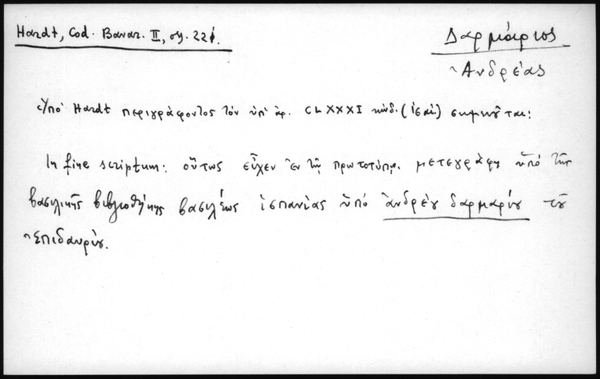 Hardt, Cod. Bavar. II, σγ. 221.
Δαρμάριος
Ἀνδρέας
Ὑπὸ Hardt περιγράφοντος τὸν ὑπ' ἀρ. CLXXXI κώδ. σημειοῦται:
In fine scriptum: οὕτως εἶχεν ἐν τῷ πρωτοτύπῳ. μετεγράφη ὑπὸ τῆς
βασιλικῆς βιβλιοθήκης βασιλέως ἱσπανίας ὑπὸ ἀνδρέου δαρμαρίου τοῦ
Ἐπιδαυρίου.